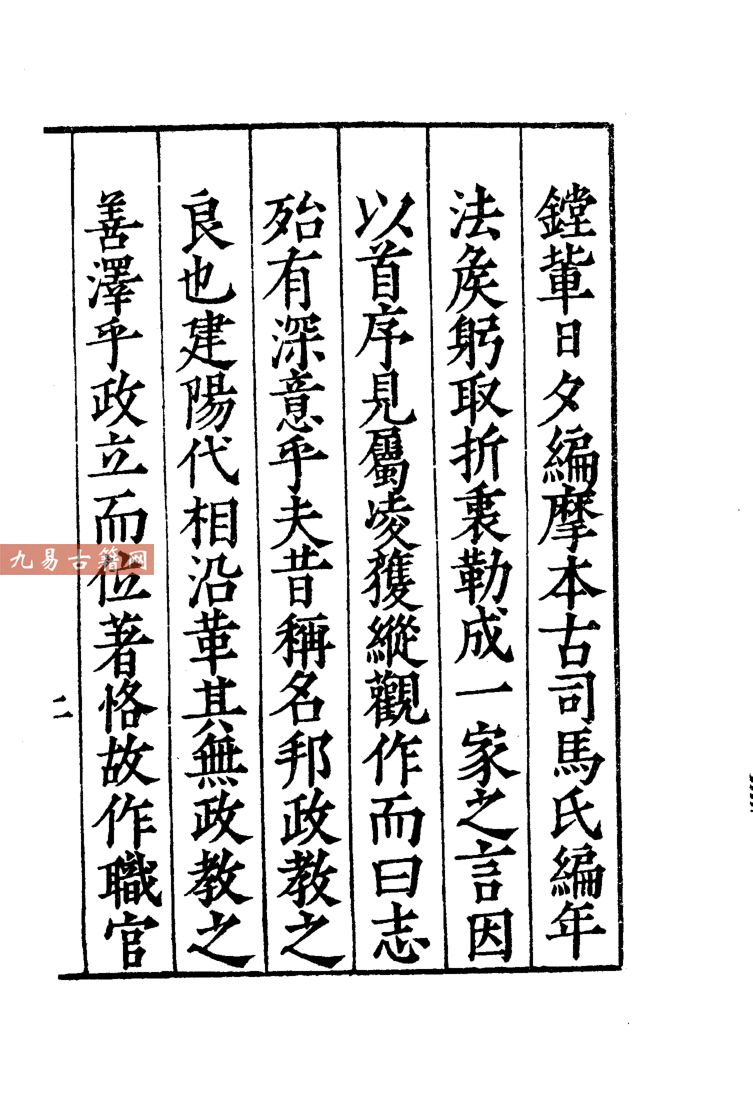 鏜輩日夕編摩本古司馬氏編年
法矦躬取折衷勒成一家之言因
以首序見屬凌獲縱觀作而曰志
殆有深意乎夫昔稱名邦政教之
良也建陽代相沿革其無政教之
善澤乎政立而位著恪故作職官
二
九易古籍网